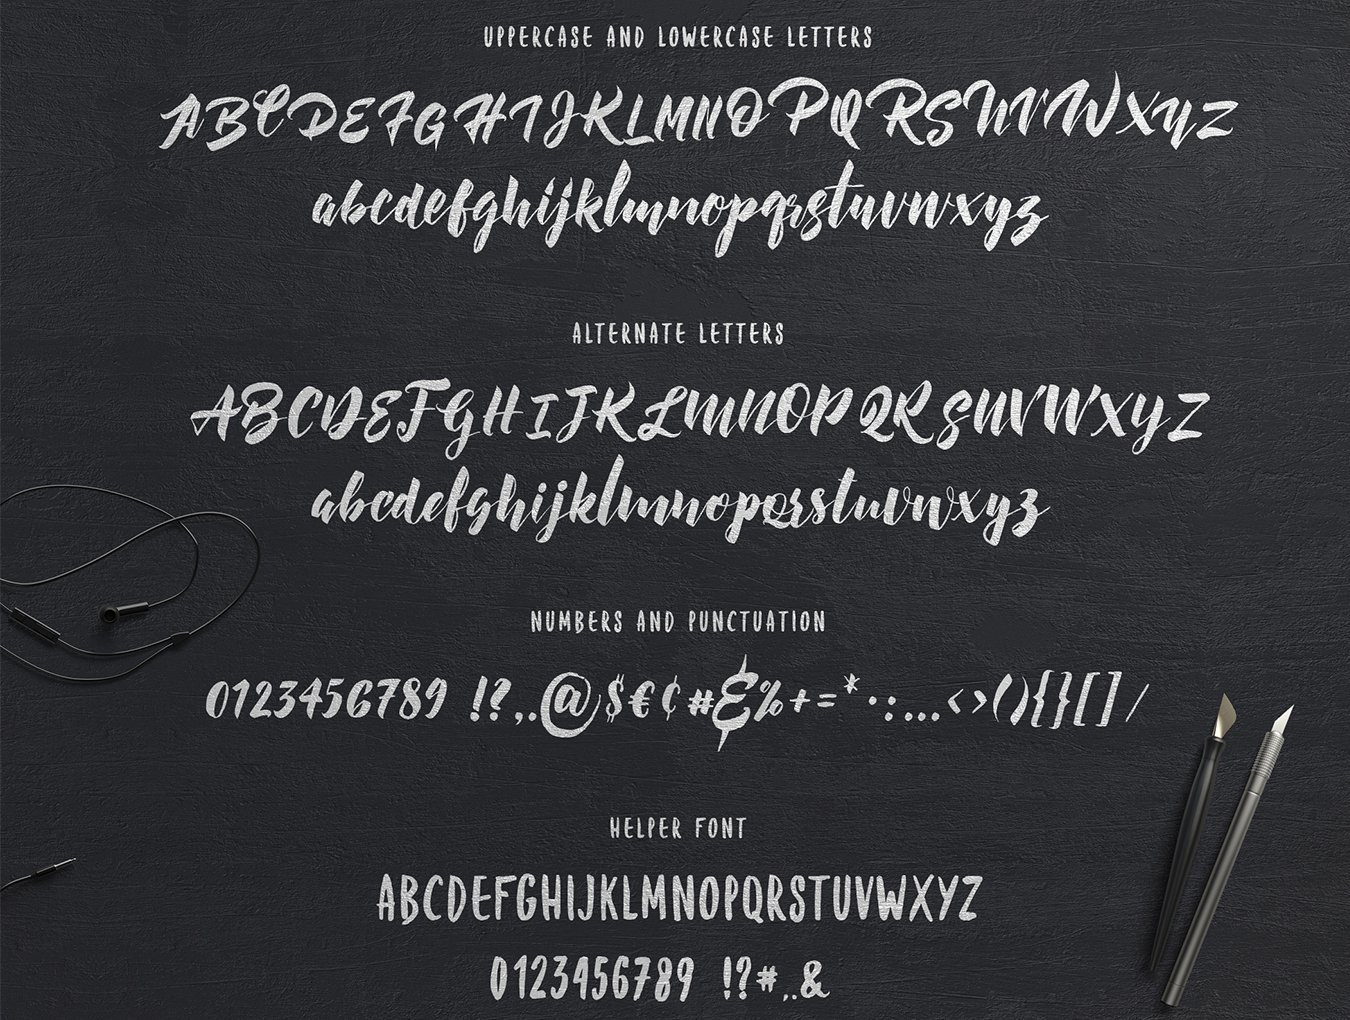 UPPERCASE AND LOWERCASE LETTERS
ABCDEFGHIJKLMNOPQRSTUVWXYZ
abcdefghijklmnopqrstuvwxyz
ALTERNATE LETTERS
ABCDEFGHIJKLMNOPQRSTUVWXYZ
abcdefghijklmnopqrstuvwxyz
NUMBERS AND PUNCTUATION
0123456789 !?,.@$€¢#&%+=*·:...<>(){}[]/
HELPER FONT
ABCDEFGHIJKLMNOPQRSTUVWXYZ
0123456789 !?#,.&